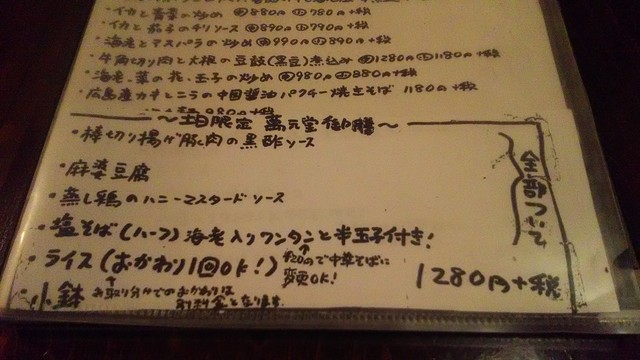 ・イカと青菜の炒め ㊥880円 ㊛780円+税
・イカと茄子のチリソース ㊥890円 ㊛790円+税
・海老とアスパラの炒め ㊥990円 ㊛890円+税
・牛角切り肉と大根の豆鼓(黒豆)煮込み 1280円 1180円+税
・海老、菜の花、玉子の炒め 980円 880円+税
・広島産カキとニラの中国醤油パクチー焼きそば 1180円+税
980円+税
〜土日限定 萬元堂御膳〜
・棒切り揚げ豚肉の黒酢ソース
・麻婆豆腐
・蒸し鶏のハニーマスタードソース
・塩そば(ハーフ)海老入りワンタンと半玉子付き!
・ライス(おかわり1回OK!)
+20で中華そばに
変更OK!
・小鉢
お取り分けでのおかわりは
別料金となります。
全部ついて
1280円+税